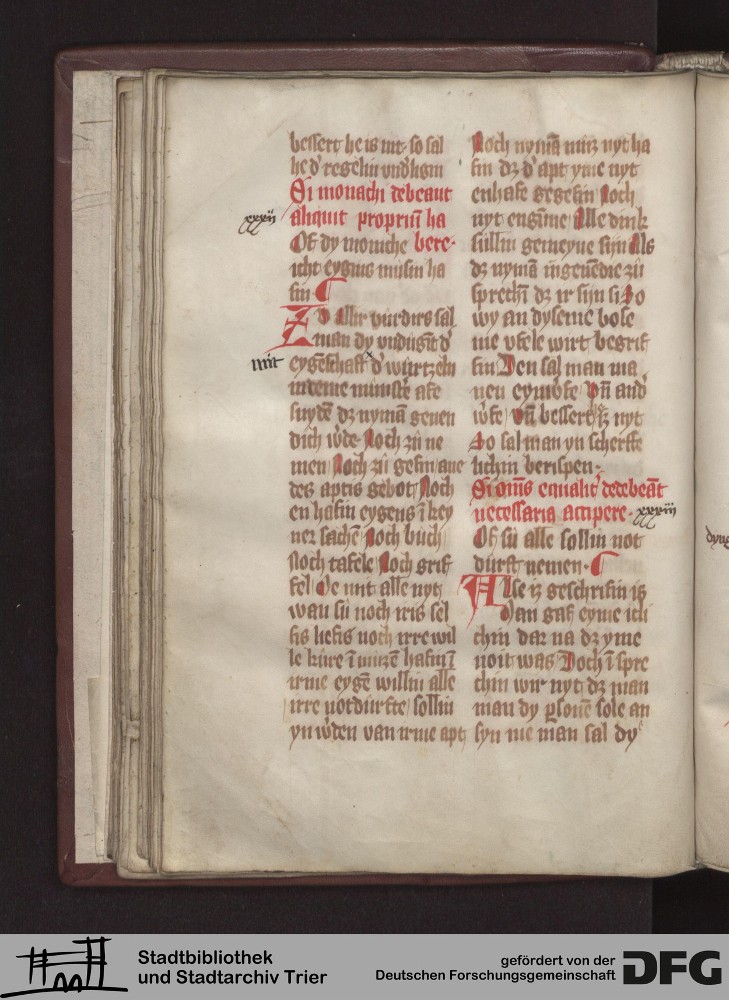 bessert he is nit so sal
he d' regelin vnd'ligin
Si monachi debeant
xxxij
aliquit propriū ha
Ob dy moniche bere
icht eygins musin ha
bin
Zv allir vurdirs sal
man dy vndugīt d'
mit
eygēschaft d' wurtzeln
in deme munstēr abe
snydē dz nymā geuen
dich w'de Noch zu ne
men Noch zu gebin ane
des aptis gebot Noch
en habin eygens ī key
ner sachē Noch buch
Noch tafele Noch grif
fel Oe mit alle nyt
wan sü noch iris sel
bis liebis noch irre wil
le kure ī muzē habin ī
irme eygē willin alle
irre notdurfte sollin
yn w'den van irme apt
Noch nymā muz nyt ha
bin dz d' apt yme nyt
enhabe gegebin Noch
nyt engūne Alle dink
sullin gemeyne sijn Als
dz nymā ingeuēdie zu
sprechī dz ir sijn si So
wy an dyseme bose
me vbele wirt begrif
fin Den sal man ma
nen eymōbe Vn̄ and'
w'be Vn̄ bessert sz nyt
So sal man yn scherffe
lichin berispen
Si om̄s equalit' debeāt
necessaria accipere xxxiij
Ob sü alle sollin not
durft nemen
Alse iz geschribin iz
Man gab eyme icli
chin dar na dz yme
noit was Doch ī spre
chin wir nyt dz man
man dy ꝑsonē sole an
syn me man sal dy
Stadtbibliothek
und Stadtarchiv Trier
gefördert von der
Deutschen Forschungsgemeinschaft
DFG